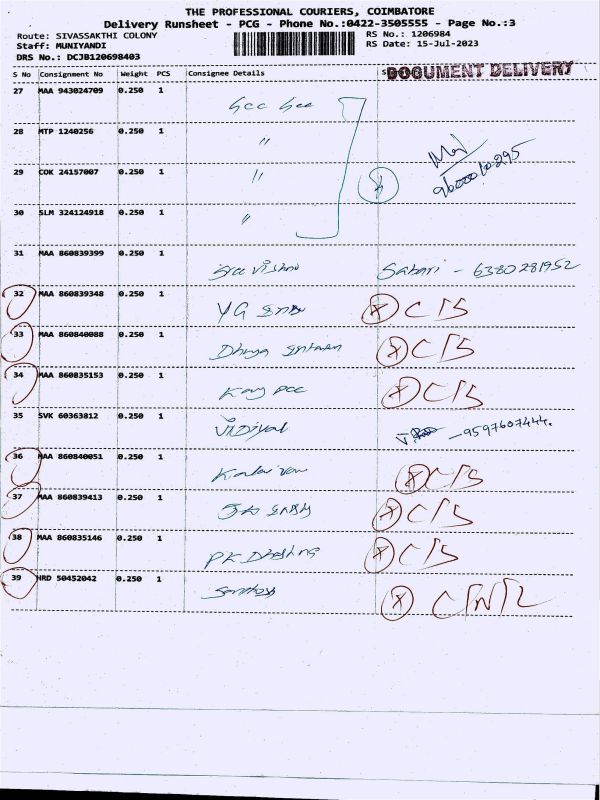 THE PROFESSIONAL COURIERS, COIMBATORE
Delivery Runsheet - PCG - Phone No.:0422-3505555 - Page No.:3
Route: SIVASSAKTHI COLONY RS No.: 1206984
Staff: MUNIYANDI RS Date: 15-Jul-2023
DRS No.: DCJB120698403
S No Consignment No Weight PCS Consignee Details S
DOCUMENT DELIVERY
27 MAA 943024709 0.250 1
28 MTP 1240256 0.250 1 "
29 COK 24157007 0.250 1 "
9600010295
30 SLM 324124918 0.250 1 "
31 MAA 860839399 0.250 1 Sree Vishnu Sabari - 6380281952
32 MAA 860839348 0.250 1 YG X C/S
33 MAA 860840088 0.250 1 X C/S
34 MAA 860835153 0.250 1 X C/S
35 SVK 60363812 0.250 1 Vidiyal - 9597607444.
36 MAA 860840051 0.250 1 X C/S
37 MAA 860839413 0.250 1 X C/S
38 MAA 860835146 0.250 1 PK X C/S
39 HRD 50452042 0.250 1 Santhosh X